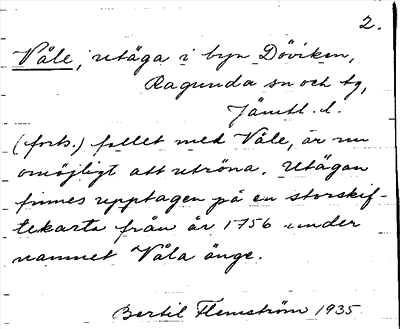 2.
Våle, utäga i byn Döviken,
Ragunda sn och tg,
Jämtl. l.
(forts.) fallet med Våle, är nu
omöjligt att utröna. Utägan
finnes upptagen på en storskif-
tekarta från år 1756 under
namnet Våla änge.
Bertil Flemström 1935